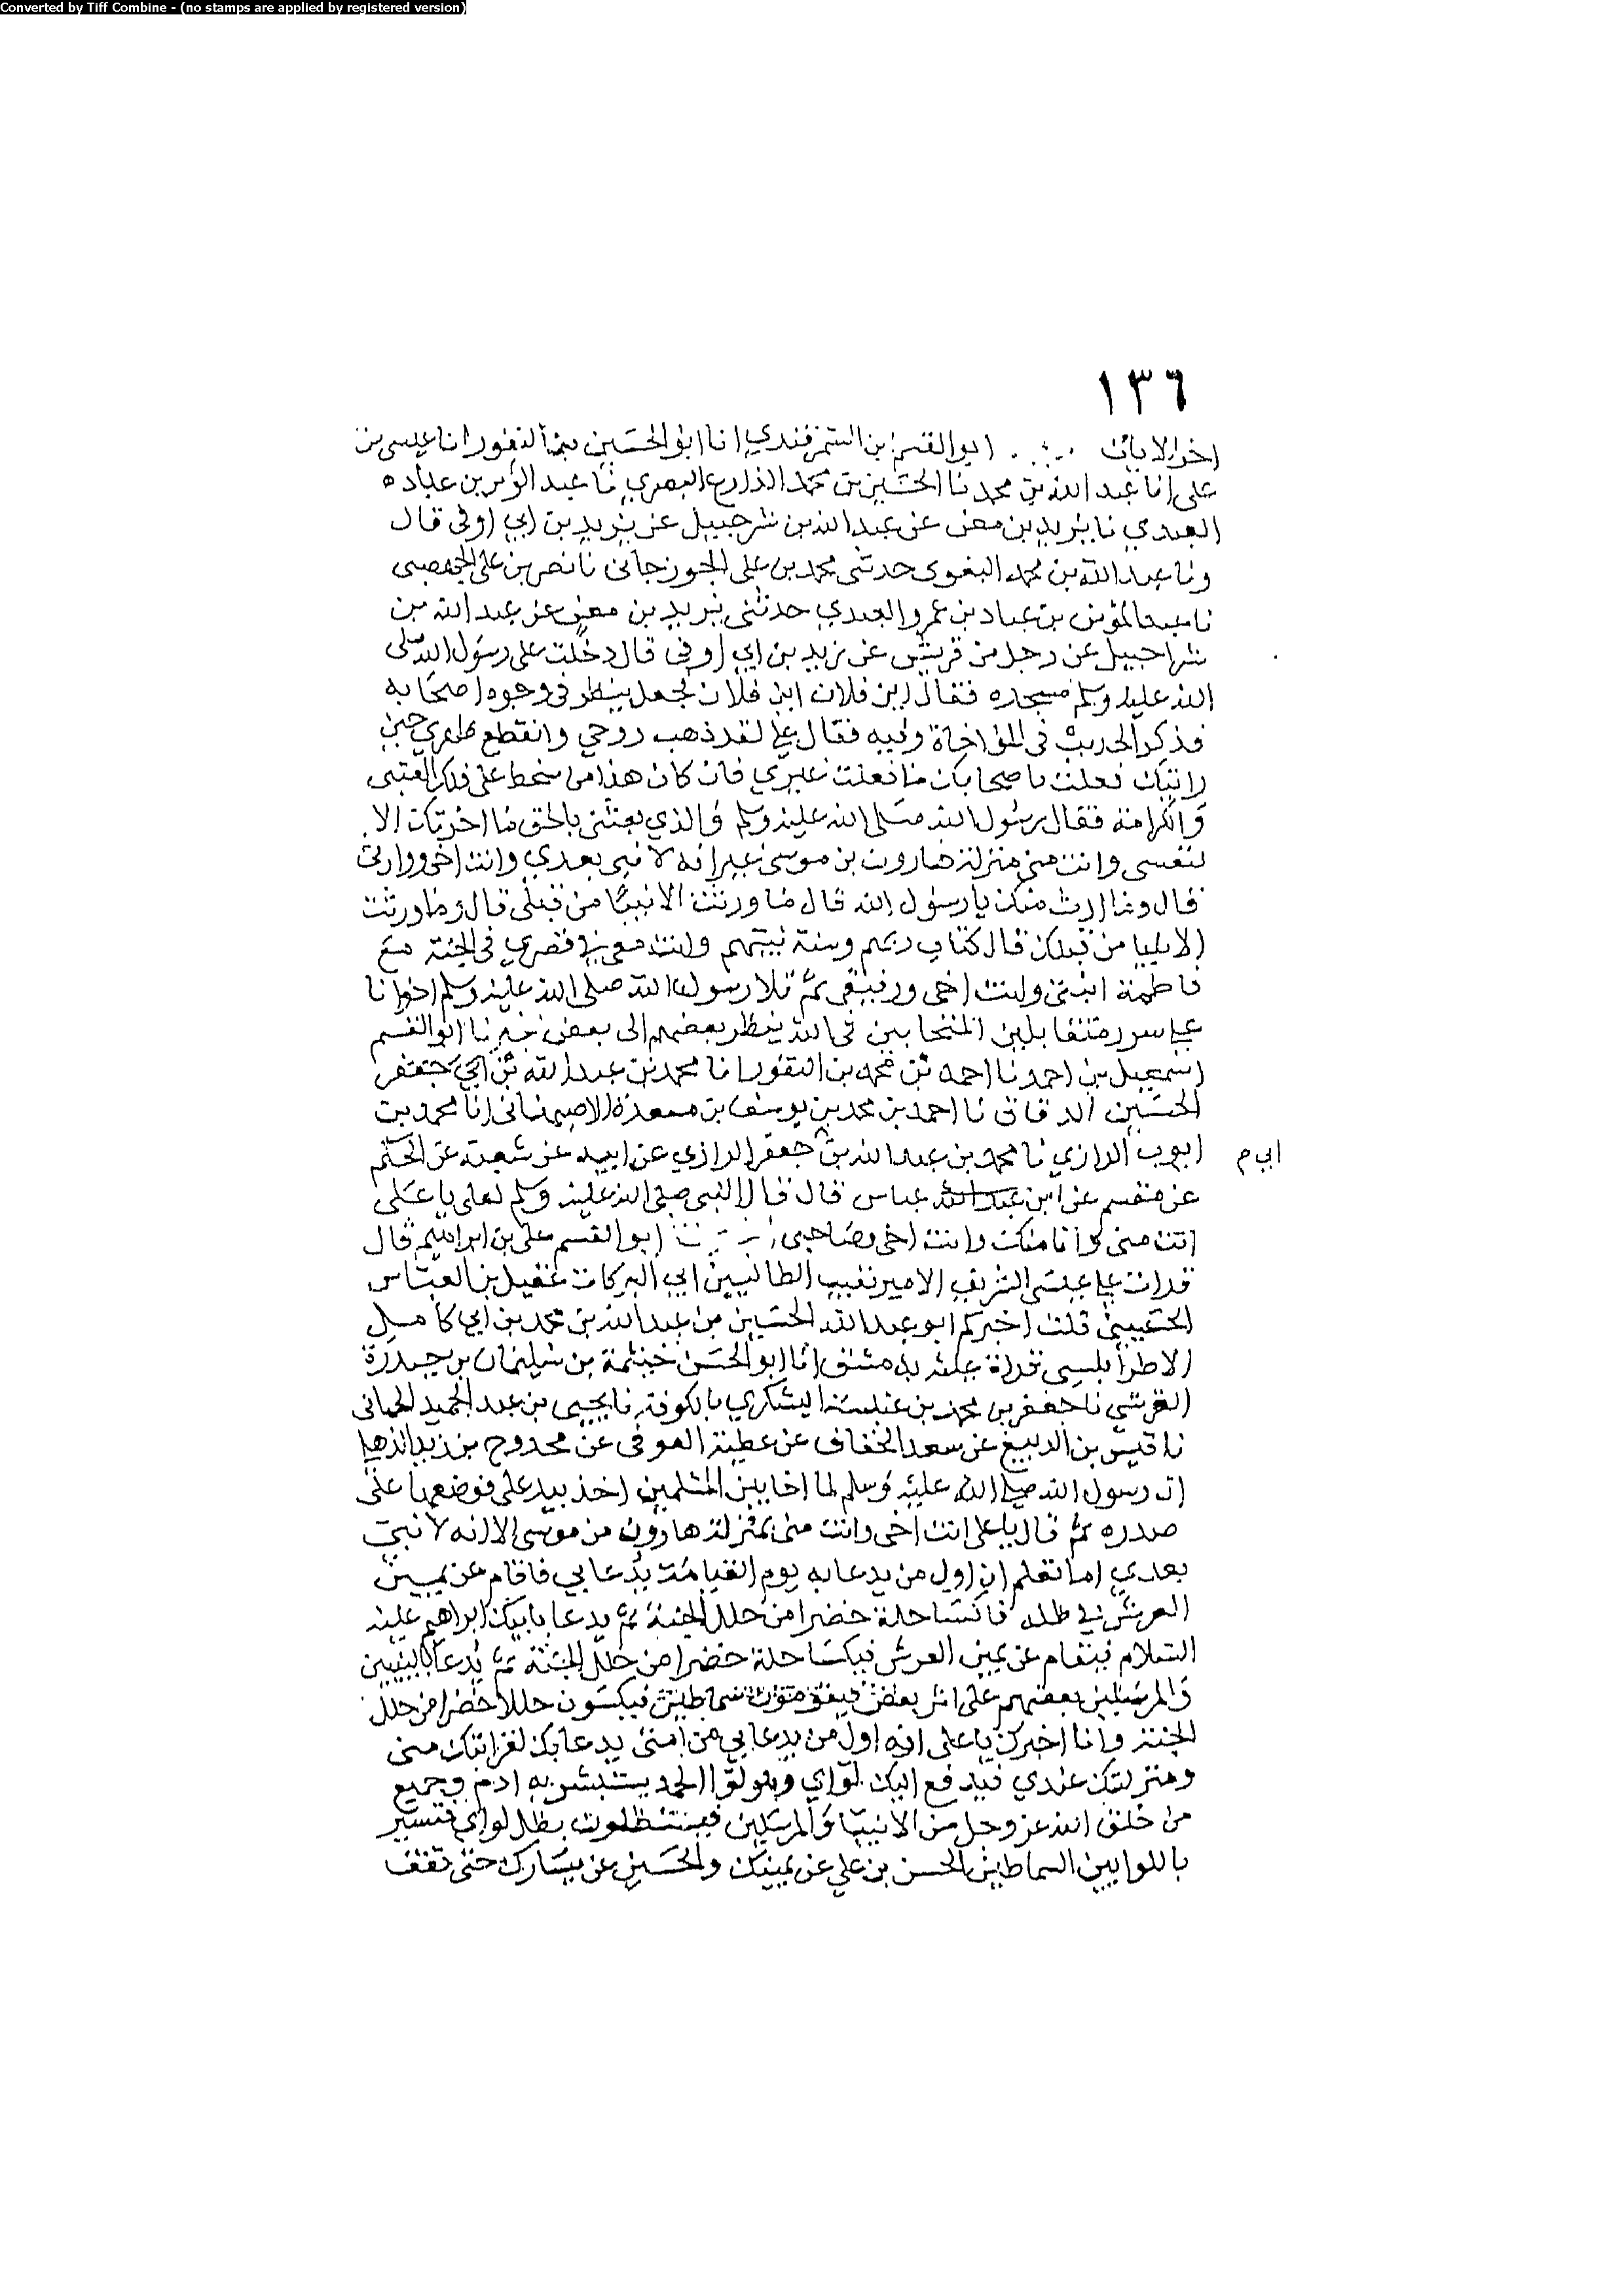 Converted by Tiff Combine - (no stamps are applied by registered version)
١٣٦
اخر الابيات ابو القسم بن السمرقندي انا ابو الحسين بن النقور انا عيسى بن
على انا عبد الله بن محمد نا الحسين بن محمد الذارع البصري نا عبد المومن بن عباده
العبدي نا يزيد بن معن عن عبد الله بن شرحبيل عن يزيد بن ابي اوفى قال
ونا عبد الله بن محمد البغوى حدثنى محمد بن على الجوزجانى نا نصر بن على الجهضمى
نا عبد المؤمن بن عباد بن عمرو العبدي حدثنى يزيد بن معن عن عبد الله بن
شراحبيل عن رجل من قريش عن زيد بن ابي اوفى قال دخلت على رسول الله صلى
الله عليه وسلم مسجده فقال اين فلان اين فلان فجعل ينظر فى وجوه اصحابه
فذكر الحديث فى المؤاخاة وفيه فقال على لقد ذهب روحي وانقطع ظهري حين
رايتك فعلت باصحابك ما فعلت غيري فان كان هذا من سخط على فلك العتبى
والكرامة فقال رسول الله صلى الله عليه وسلم والذي بعثنى بالحق ما اخرتك الا
لنفسى وانت منى منزلة هارون بن موسى غير انه لا نبى بعدي وانت اخى ووارثى
قال وما ارث منك يا رسول الله قال ما ورثت الانبيا من قبلى قال وما ورثت
الانبيا من قبلك قال كتاب ربهم وسنة نبيهم وانت معى في قصري فى الجنة مع
فاطمة ابنتى وانت اخى ورفيقى ثم تلا رسول الله صلى الله عليه وسلم اخوانا
على سرر متقابلين المتحابين فى الله ينظر بعضهم الى بعض خبرنا ابو القسم
اسمعيل بن احمد نا احمد بن محمد بن النقور انا محمد بن عبد الله بن ابي جعفر
الحسين الدقاق نا احمد بن محمد بن يوسف بن مسعدة الاصبهانى انا محمد بن
ايوب الرازي نا محمد بن عبد الله بن جعفر الرازي عن ابيه عن شعبة عن الحكم
ابي م
عن مقسم عن ابن عبد الله عباس قال قال النبى صلى الله عليه وسلم لعلى يا على
انت منى وانا منك وانت اخى وصاحبى ابو القسم على بن ابراهيم قال
قرات على عمى الشريف الامير نقيب الطالبيين ابي البركات عقيل بن العباس
الحسيني قلت اخبركم ابو عبد الله الحسين بن عبد الله بن محمد بن ابي كامل
الاطرابلسى قراة عليه بدمشق انا ابو الحسن خيثمة بن سليمان بن حيدرة
القرشي نا جعفر بن محمد بن عنبسة اليشكري بالكوفة نا يحيى بن عبد الحميد الحمانى
نا قيس بن الربيع عن سعد الخفاف عن عطية العوفى عن محدوج بن زيد الذهلى
ان رسول الله صلى الله عليه وسلم لما اخا بين المسلمين اخذ بيد على فوضعها على
صدره ثم قال يا على انت اخى وانت منى بمنزلة هارون من موسى الا انه لا نبي
بعدي اما تعلم ان اول من يدعا به يوم القيامة يدعا بي فاقام عن يمين
العرش في ظله فاكسا حلة خضرا من حلل الجنة ثم يدعا بابيك ابراهيم عليه
السلام فيقام عن يمين العرش فيكسا حلة خضرا من حلل الجنة ثم يدعا بالنبيين
والمرسلين بعضهم على اثر بعض فيقومون سماطين فيكسون حللا خضرا من حلل
الجنة وانا اخبرك يا على انه اول من يدعا بي من امتى يدعا بك لقرابتك منى
ومنزلتك عندي فيدفع اليك لواي وهو لوا الحمد يستبشر به ادم وجميع
من خلق الله عز وجل من الانبيا والمرسلين فيستظلون بظل لواي فتسير
باللوا بين السماطين الحسن بن علي عن يمينك والحسين عن يسارك حتى تقف